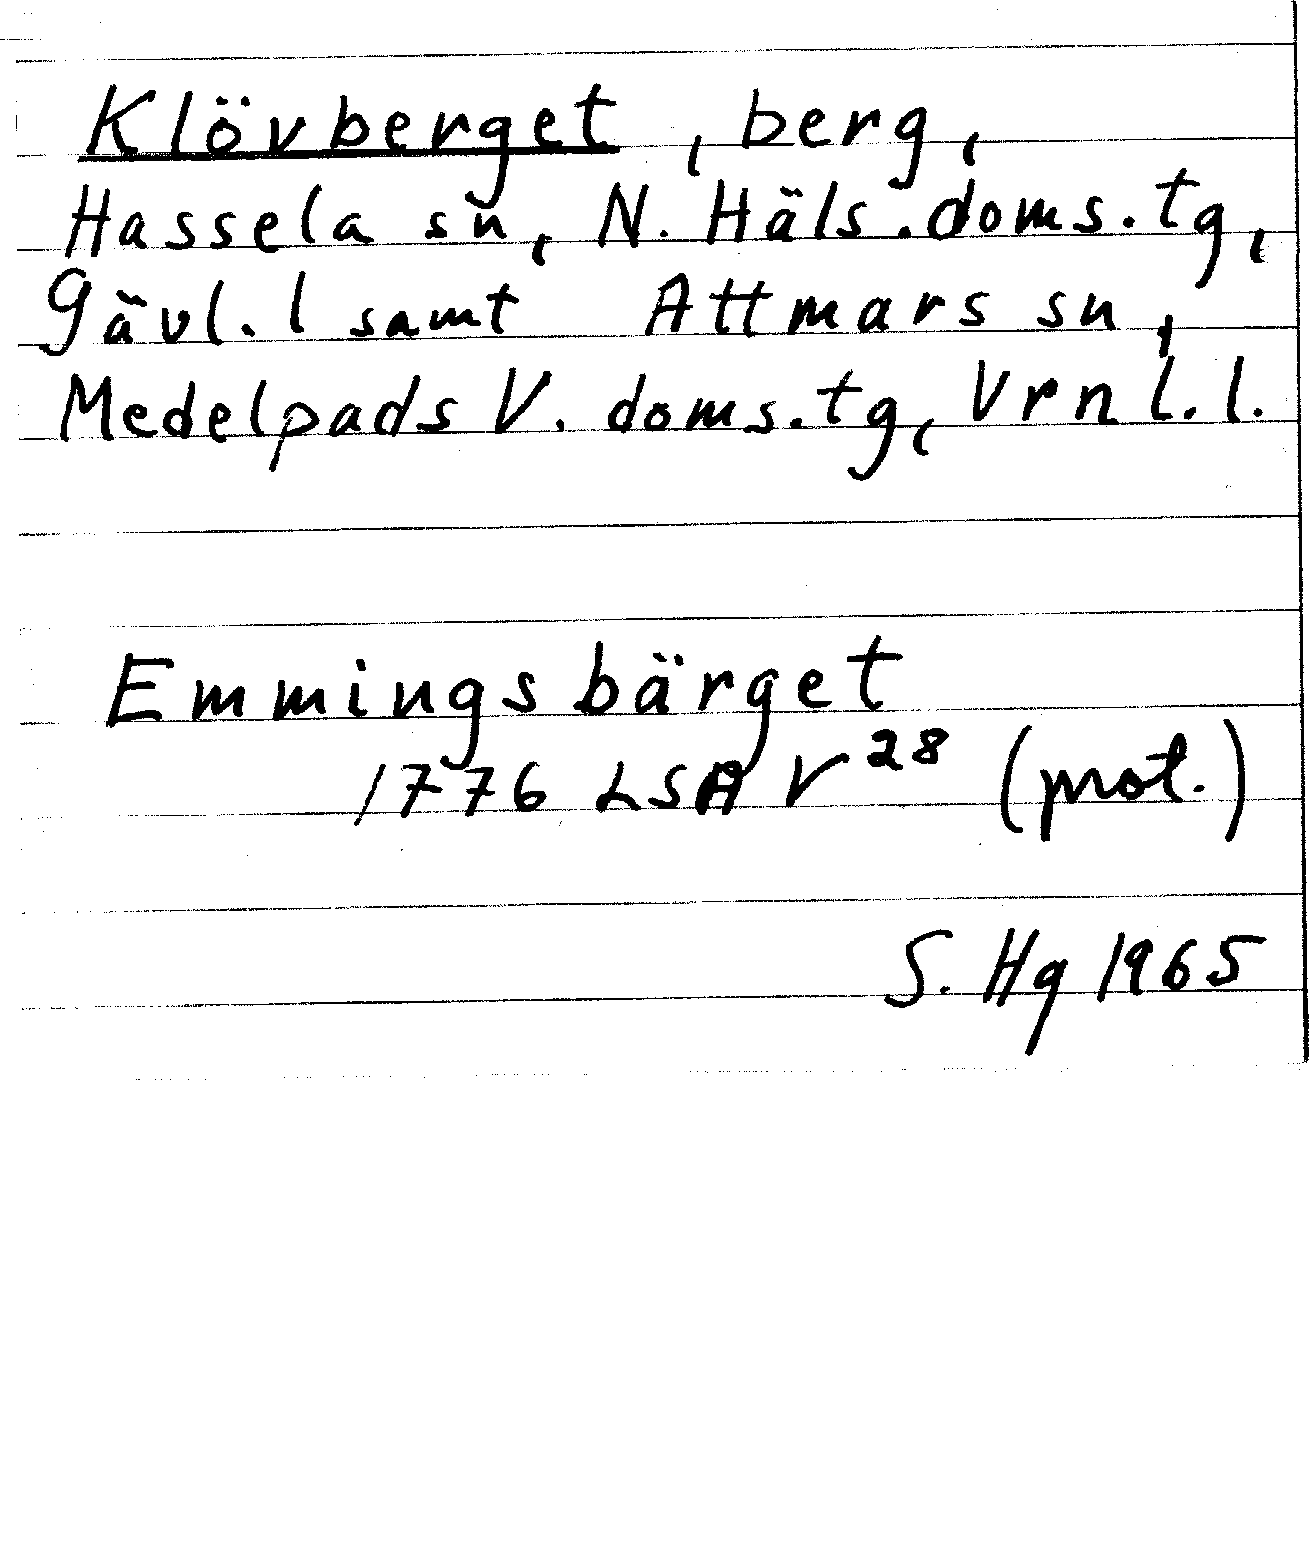 Klövberget, berg,
Hassela sn, N. Häls. doms. tg,
Gävl. l samt Attmars sn,
Medelpads V. doms. tg, Vrnl. l.
Emmingsbärget
1776 LSA V 28 (prot.)
S. Hg 1965